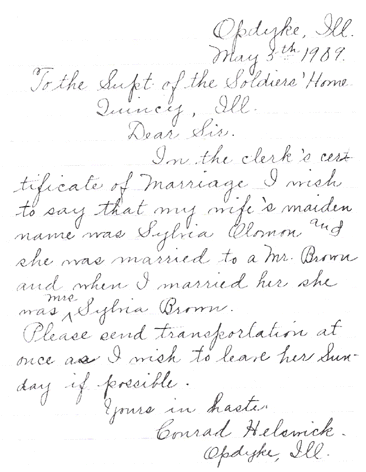 Opdyke, Ill.
May 5th. 1909.
To the Supt of the Soldiers' Home
Quincy, Ill.
Dear Sir.
In the clerk's cer-
tificate of Marriage I wish
to say that my wife's maiden
name was Sylvia and
she was married to a Mr. Brown
and when I married her she
was Mrs Sylvia Brown.
Please send transportation at
once as I wish to leave her Sun-
day if possible.
Yours in haste.
Conrad Helswick.
Opdyke, Ill.